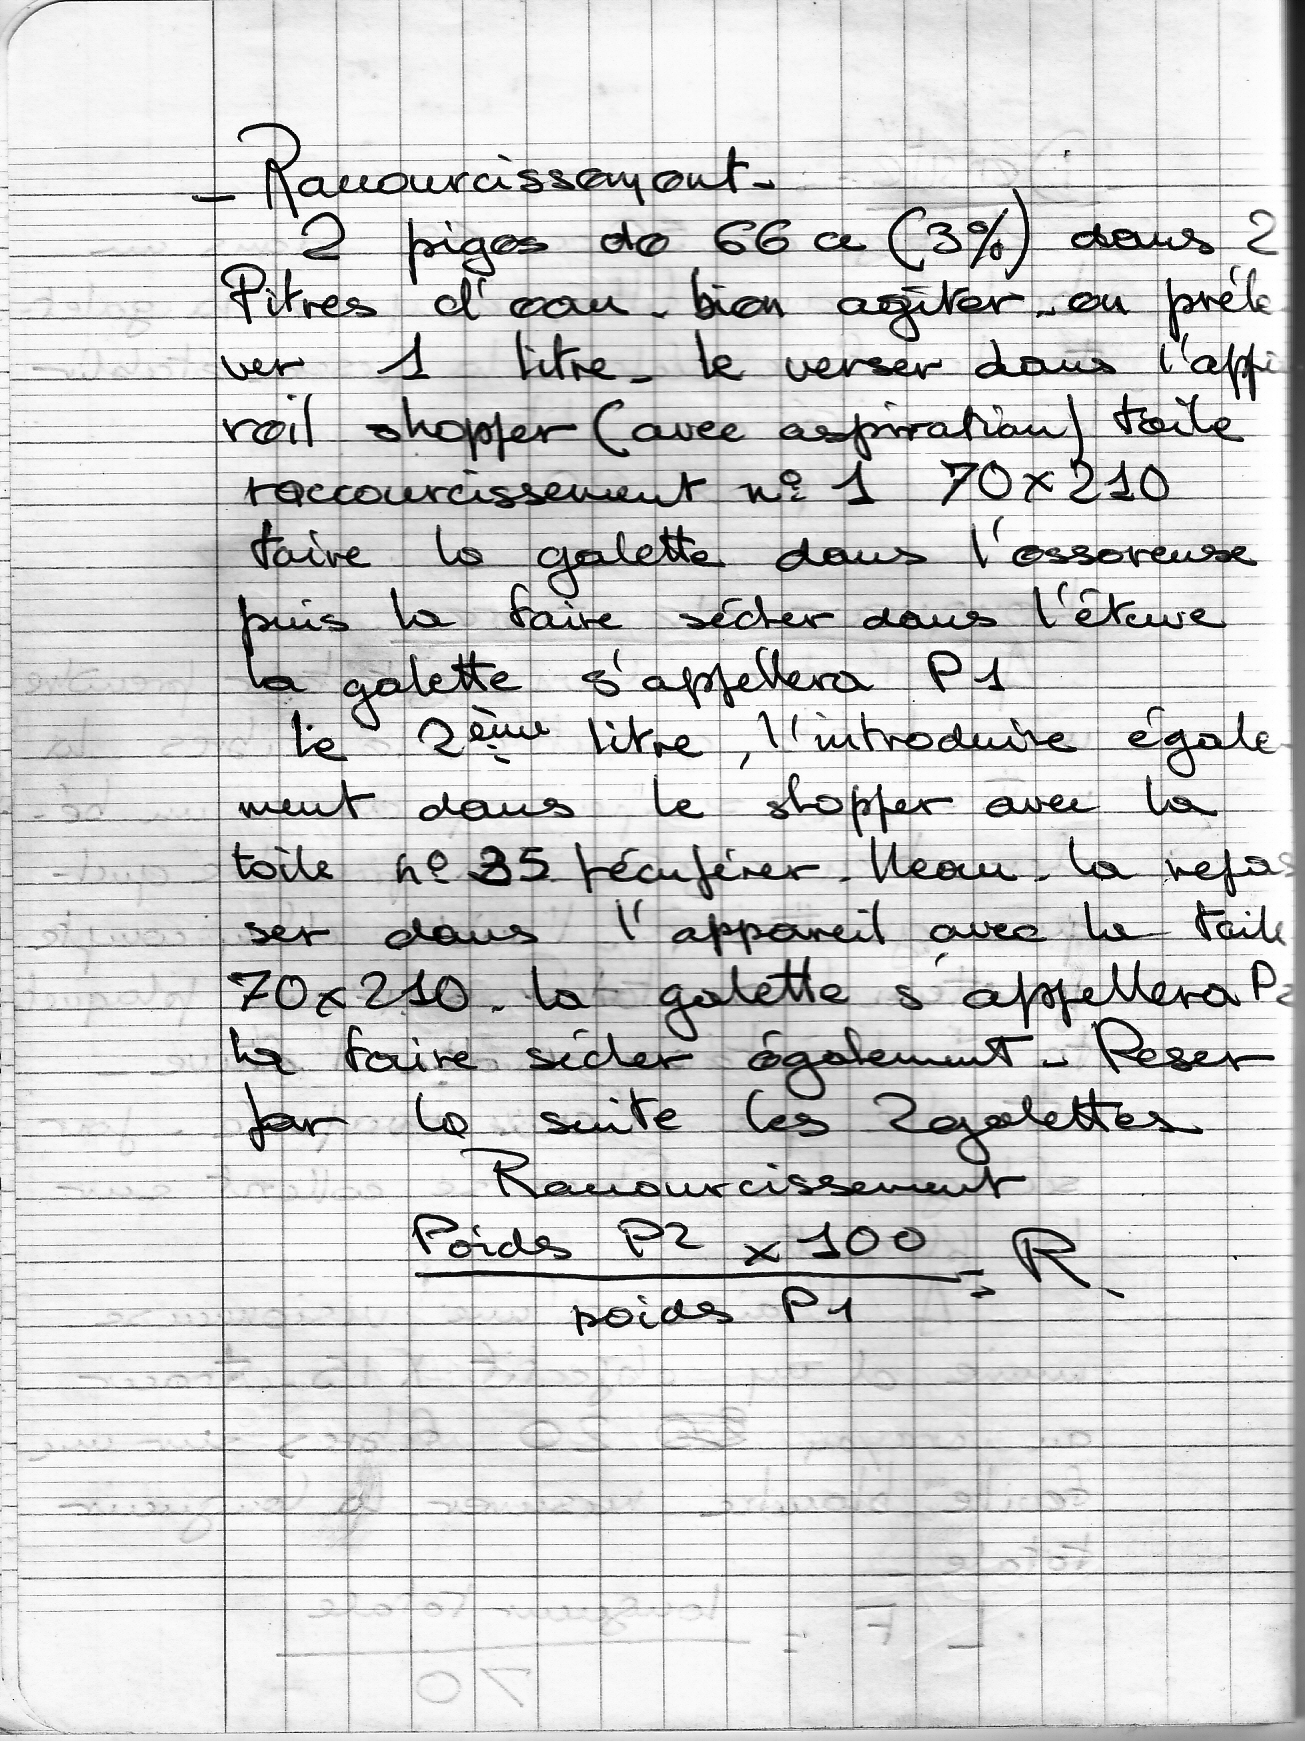 - Raccourcissement -
2 piges de 66 cc (3%) dans 2
litres d'eau. bien agiter. en préle
ver 1 litre - le verser dans l'appa
reil shopper (avec aspiration) toile
raccourcissement n° 1 70x210
faire la galette dans l'essoreuse
puis la faire sécher dans l'étuve
la galette s'appellera P1
Le 2ème litre, l'introduire égale
ment dans le shopper avec la
toile n° 35 récupérer. l'eau. la repas
ser dans l'appareil avec la toile
70x210. la galette s'appellera P2
la faire sécher également - Peser
par la suite les 2 galettes
Raccourcissement
Poids P2 x 100 = R.
poids P1